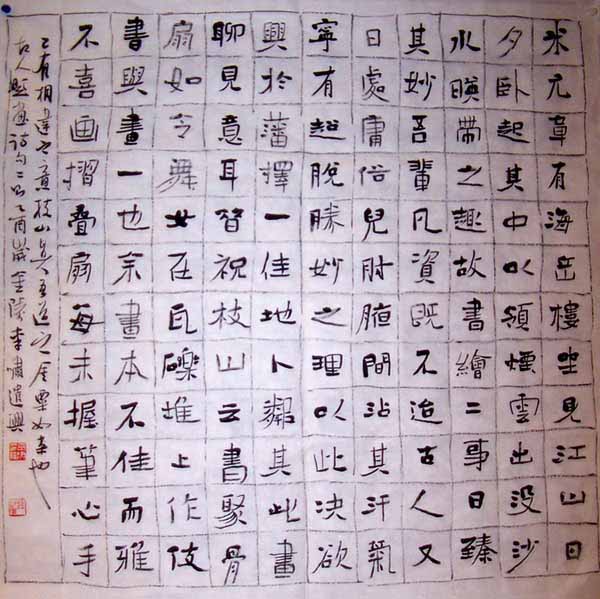 米元章有海岳樓坐見江山日
夕臥起其中以領煙雲出没沙
水暎帶之趣故書繪二事日臻
其妙吾輩凡資既不迨古人又
日處庸俗兒肘腋間沾其汗氣
寧有超脫勝妙之理以此決欲
興於藩擇一佳地卜鄰其此畫
聊見意耳昝祝枝山云書聚骨
扇如令舞女在瓦礫堆上作伎
書與畫一也余畫本不佳而雅
不喜画摺疊扇每未握筆心手
已有相違之意枝山真吾道之金粟如来也
古人題畫詩句二則乙酉歲金陵李嘯遣興